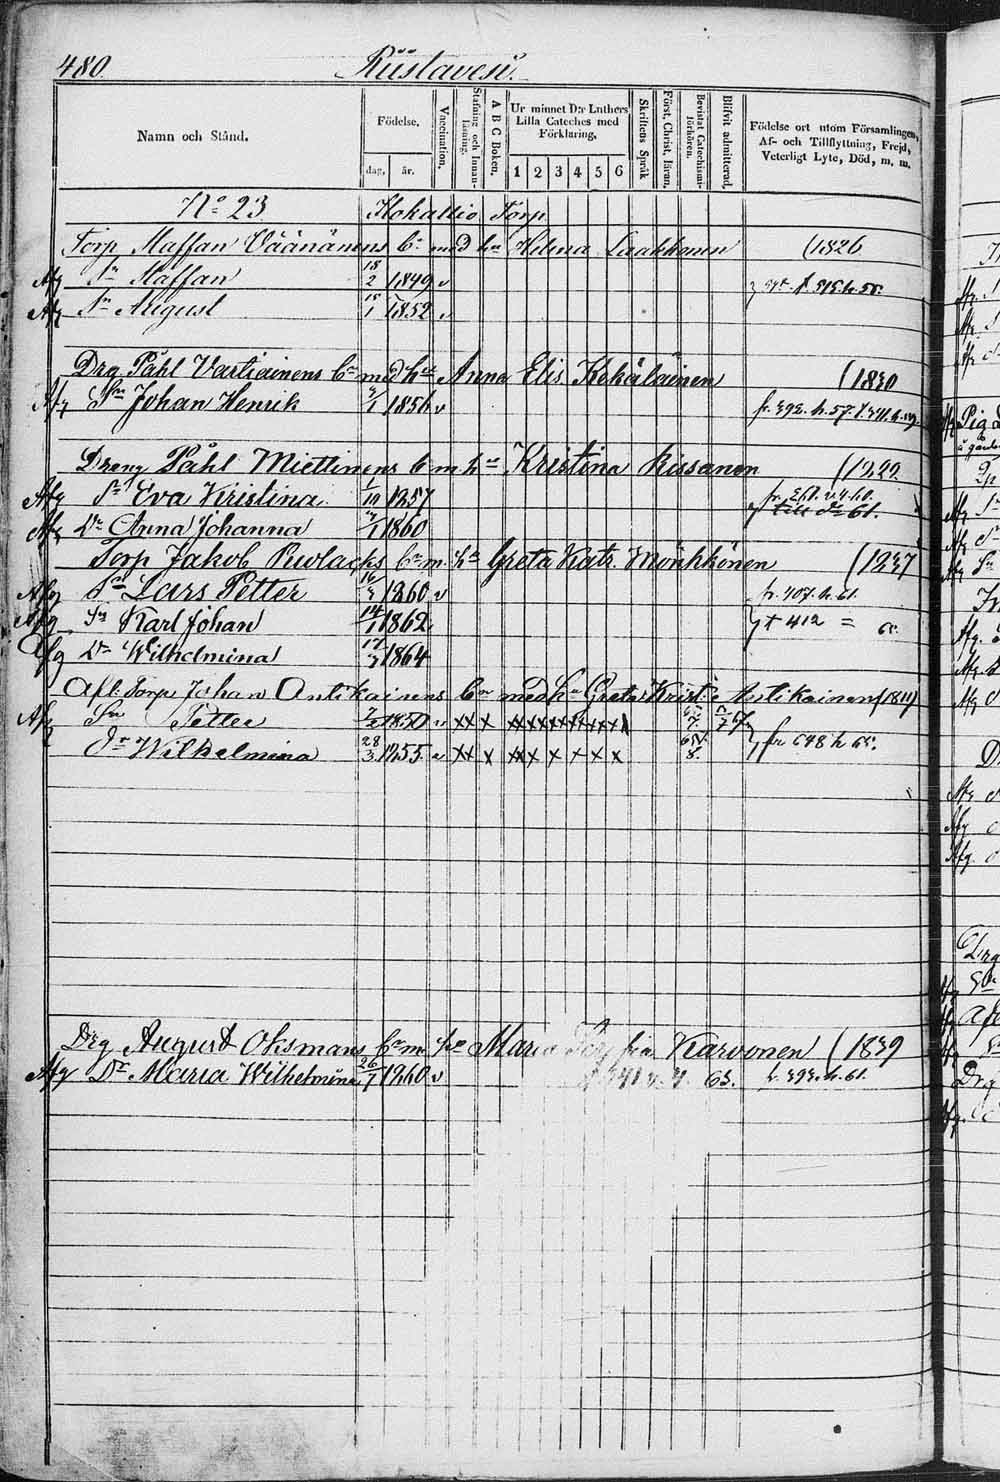 480. Riistavesi.
Namn och Stånd.
Födelse.
dag. år.
Vaccination.
Stafning och Innanläsning.
A B C Boken.
Ur minnet D:r Luthers Lilla Cateches med Förklaring.
1 2 3 4 5 6
Skriftens Språk
Först. Christ. läran.
Bevistat Catechismiförhören.
Blifvit admitterad.
Födelse ort utom Församlingen, Af- och Tillflyttning, Frejd, Veterligt Lyte, Död, m. m.
No 23 Kokallio Torp
Torp Staffan Väänänens Bn med hu Helena Laakkonen (1826
Afg Sn Staffan 18/2 1849 v
Afg Sn August 15/1 1852 v
Drg Påhl Vartiainens Bn med hu Anna Elis Kekäläinen (1830
Afg Sn Johan Henrik 1856 v fr. 392. h. 57.
Dreng Påhl Miettinens B m hu Kristina Rissanen (1829.
Afg Dr Eva Kristina 1/10 1857
Afg Dr Anna Johanna 1860
Torp Jakob Puolacks Bn m. hu Greta Katr. Mönkkönen (1837
Afg Sn Lars Petter 16/3 1860 v fr. 407. h. 61.
Afg Sn Karl Johan 14/1 1862 t 412 = 65.
Afg Dr Wilhelmina 17/3 1864
Afl. Torp Johan Antikainens Bn med hu Greta Krist:a Antikainen (1811)
Afg Sn Petter 1850 v x x x x x x x x x x
Dr Wilhelmina 28/3 1855. v x x x x x x x x x 65/8. fr 648 h 65.
Drg August Oksmans Bn m hu Maria Karvonen (1839
Afg Dr Maria Wilhelmina 26/7 1860 v 63. fr. 393. h. 61.